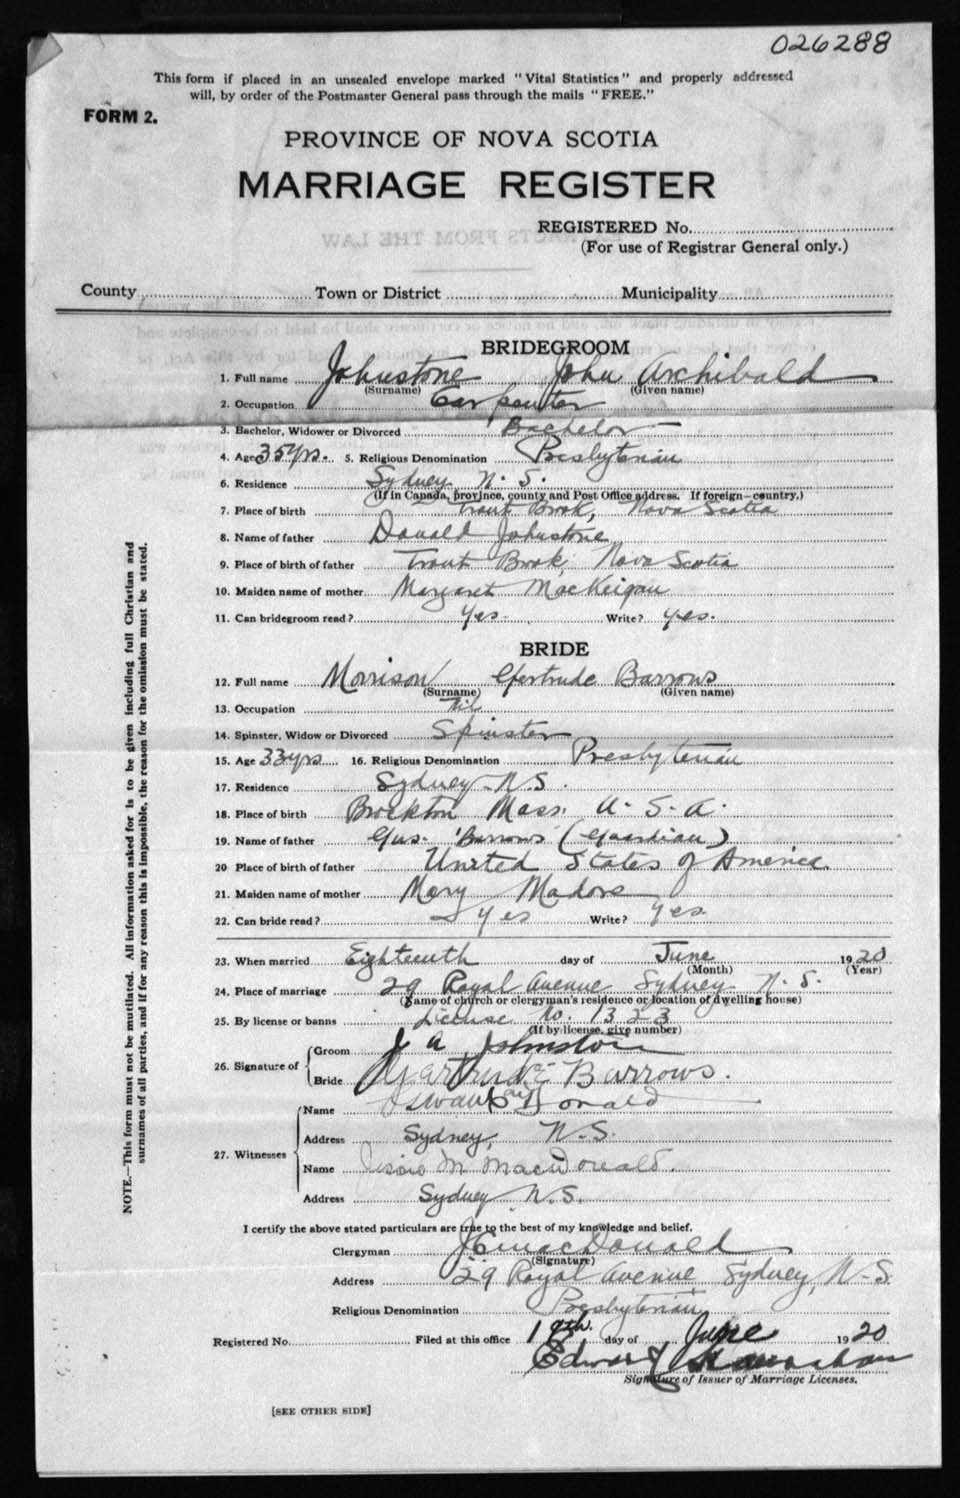 026288
This form if placed in an unsealed envelope marked "Vital Statistics" and properly addressed
will, by order of the Postmaster General pass through the mails "FREE."
FORM 2.
PROVINCE OF NOVA SCOTIA
MARRIAGE REGISTER
REGISTERED No.
(For use of Registrar General only.)
County Town or District Municipality
BRIDEGROOM
1. Full name Johnstone John Archibald
(Surname) (Given name)
2. Occupation Carpenter
3. Bachelor, Widower or Divorced Bachelor
4. Age 35 yrs. 5. Religious Denomination Presbyterian
6. Residence Sydney N. S.
(If in Canada, province, county and Post Office address. If foreign—country.)
7. Place of birth Trout Brook, Nova Scotia
8. Name of father Donald Johnstone
9. Place of birth of father Trout Brook, Nova Scotia
10. Maiden name of mother Margaret MacKeigan
11. Can bridegroom read? Yes. Write? yes.
BRIDE
12. Full name Morrison Gertrude Barrows
(Surname) (Given name)
13. Occupation Nil
14. Spinster, Widow or Divorced Spinster
15. Age 33 yrs 16. Religious Denomination Presbyterian
17. Residence Sydney N.S.
18. Place of birth Brockton Mass. U. S. A.
19. Name of father Gus. Barrows (Guardian)
20 Place of birth of father United States of America
21. Maiden name of mother Mary Madore
22. Can bride read? Yes Write? Yes.
23. When married Eighteenth day of June 1920
(Month) (Year)
24. Place of marriage 29 Royal Avenue Sydney N. S.
(Name of church or clergyman's residence or location of dwelling house)
25. By license or banns License No. 1323
(If by license, give number)
26. Signature of Groom J A Johnston
Bride Gertrude Barrows.
27. Witnesses Name Donald
Address Sydney, N.S.
Name Jessie M MacDonald.
Address Sydney N.S.
I certify the above stated particulars are true to the best of my knowledge and belief.
Clergyman J E MacDonald
(Signature)
Address 29 Royal Avenue Sydney, N-S
Religious Denomination Presbyterian
Registered No. Filed at this office 19th. day of June 1920
Edward
Signature of Issuer of Marriage Licenses.
[SEE OTHER SIDE]
NOTE.—This form must not be mutilated. All information asked for is to be given including full Christian and
surnames of all parties, and if for any reason this is impossible, the reason for the omission must be stated.